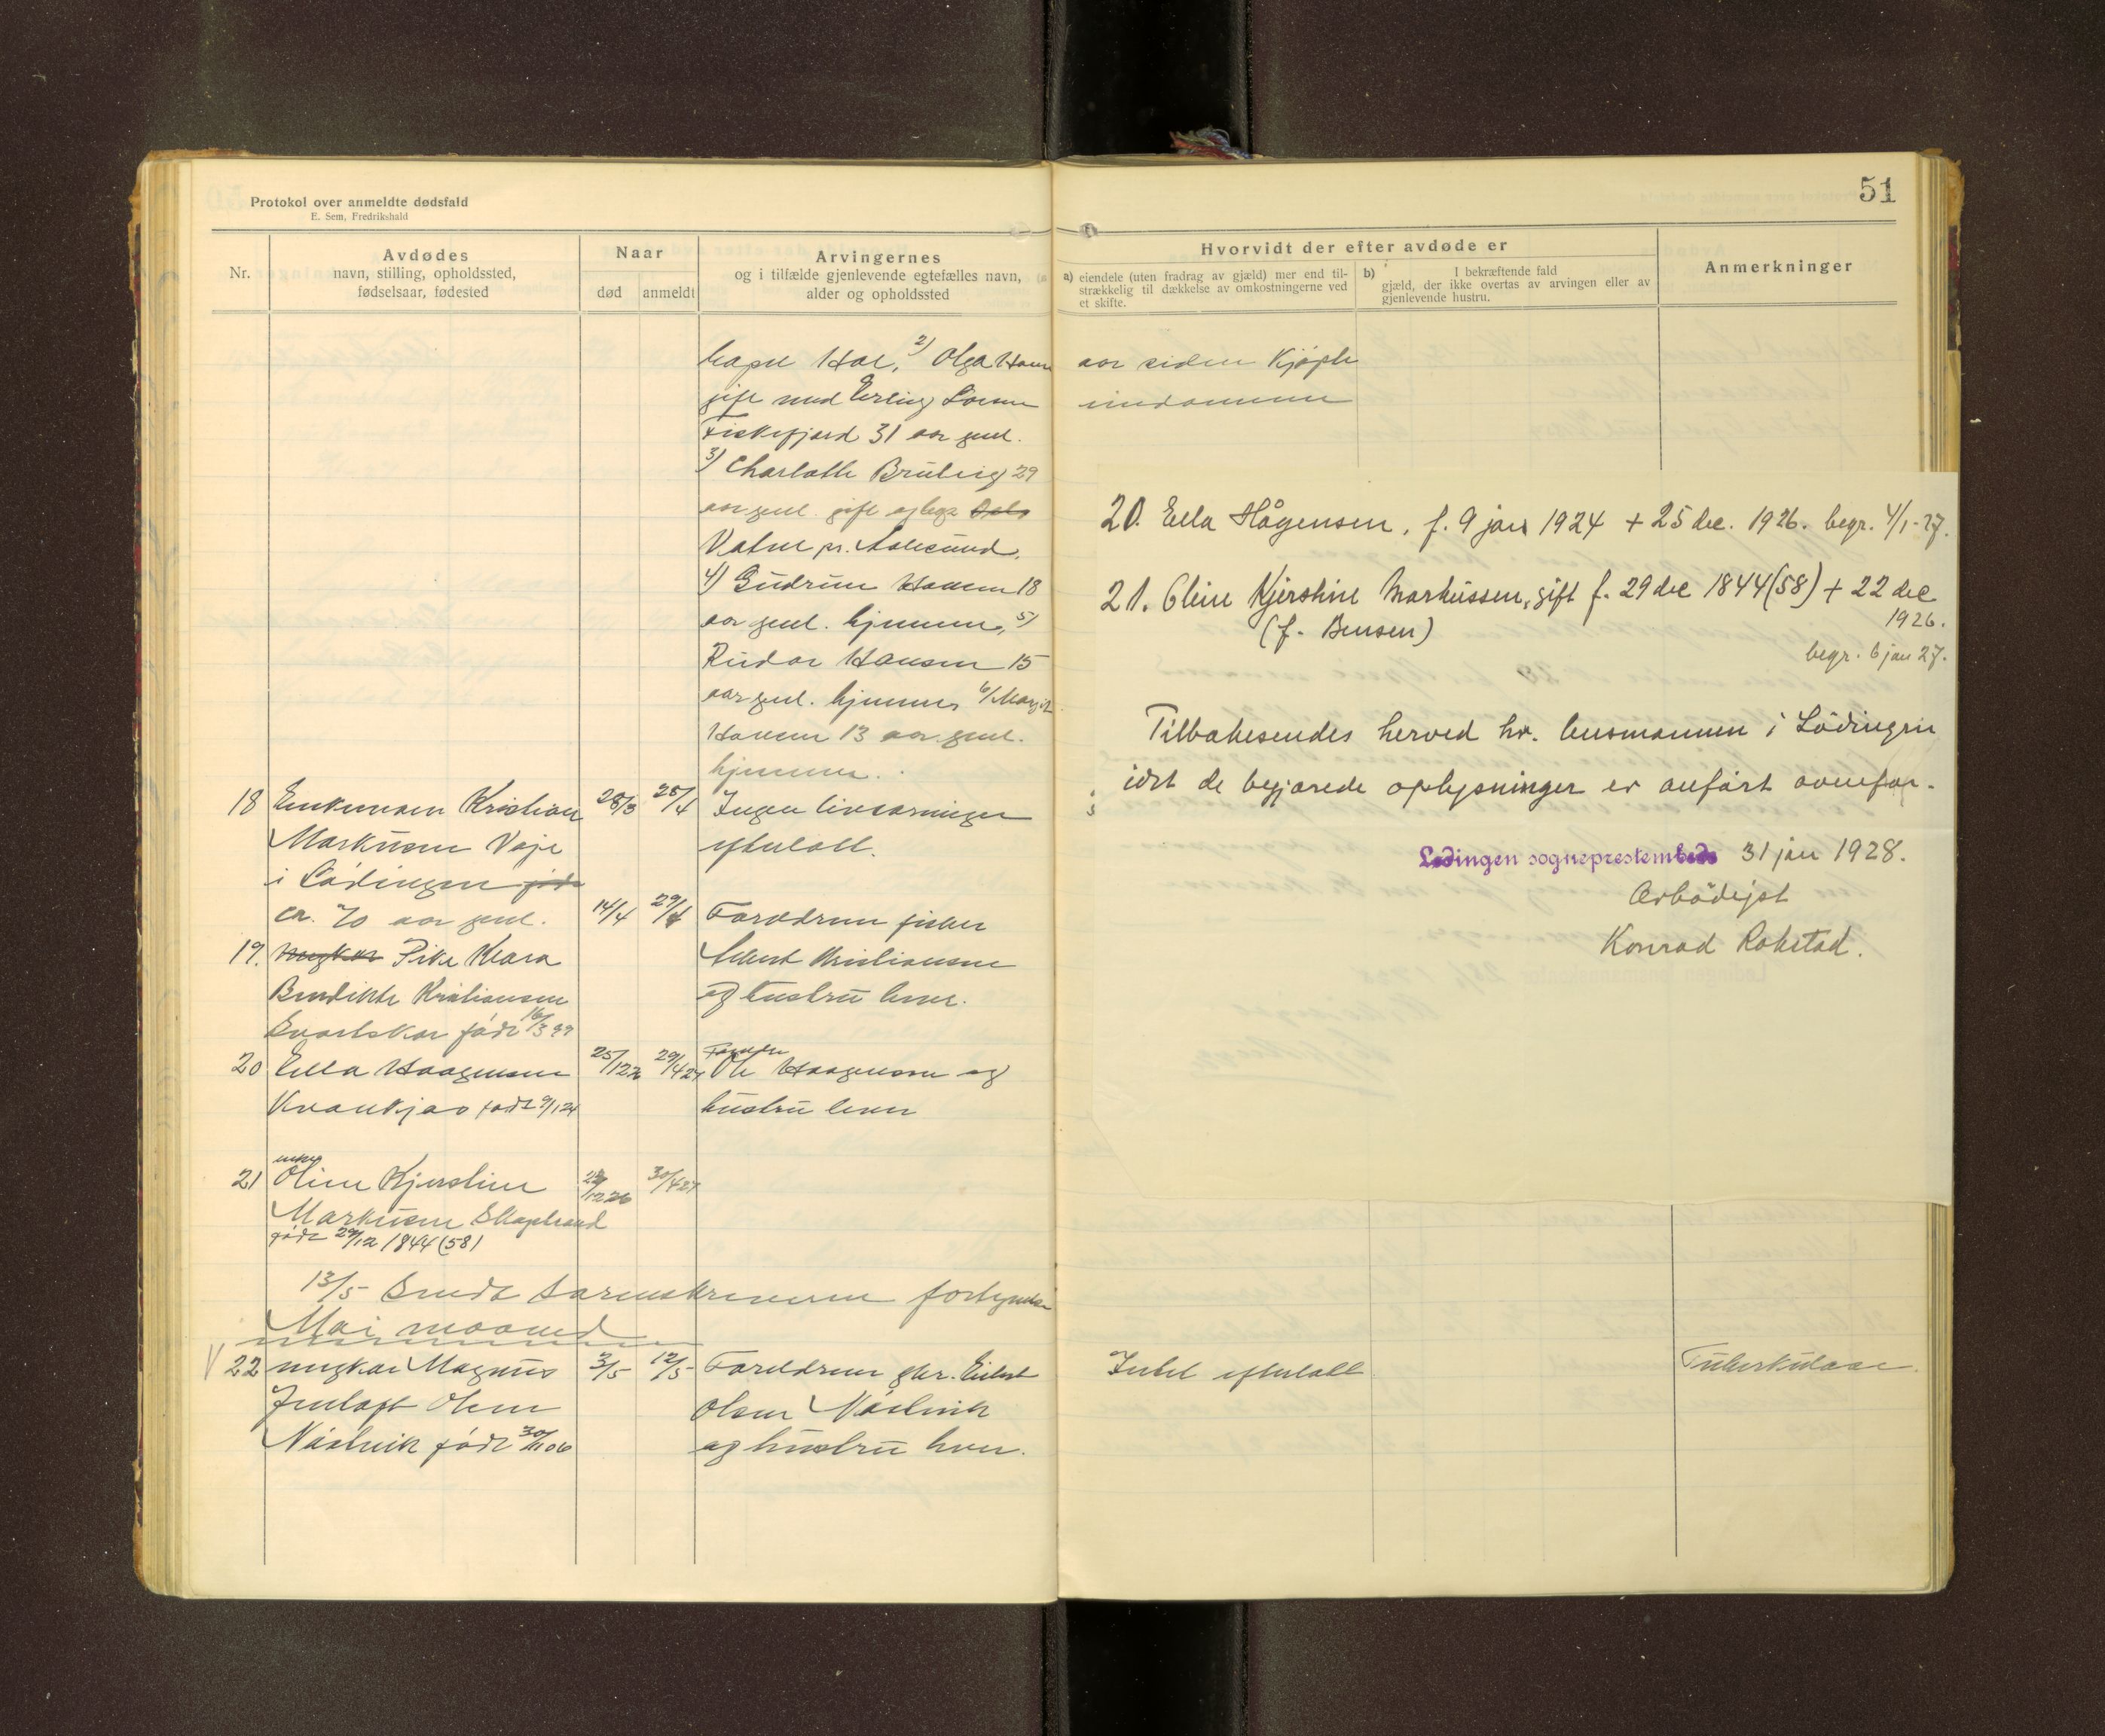 Protokol over anmeldte dødsfald
E. Sem, Fredrikshald
51
Nr.
Avdødes
navn, stilling, opholdssted,
fødselsaar, fødested
Naar
død
anmeldt
Arvingernes
og i tilfælde gjenlevende egtefælles navn,
alder og opholdssted
Hvorvidt der efter avdøde er
a) eiendele (uten fradrag av gjæld) mer end til-
strækkelig til dækkelse av omkostningerne ved
et skifte.
b) I bekræftende fald
gjæld, der ikke overtas av arvingen eller av
gjenlevende hustru.
Anmerkninger
Hol, 2) Olga Hansen
gift med Erling
31 aar gml.
3) Charlotte 29
aar gml. gift og bor Oslo
Vatne pr. Aalesund.
4) Gudrun Hansen 18
aar gml. hjemme, 5)
Reidar Hansen 15
aar gml. hjemme 6) Margit
Hansen 13 aar gml.
hjemme.
aar siden Kjøpte
18 Enkemann Kristian 28/3 28/4 Ingen livsarvinger
Markusen Vaje efterlatt.
i Lødingen født
ca. 70 aar gml.
19. ungkar Pike Klara 14/4 29/4 Forældrene fisker
Bendikte Kristiansen Kristiansen
født 16/3 99 og hustru lever.
20 Ella Haagensen 25/12 26 29/4 27 Ole Haagensen og
Kvankjos født 9/1 24 hustru lever
21 Oline Kjerstine 22/12 26 30/4 27
Markusen Skaptrand
født 29/12 1844 (58)
13/5 Sendt Sorenskriveren fortegnelse
Mai maaned
V 22 ungkar Magnus 3/5 12/5 Forældrene gbr. Eilert
Jentoft Olsen Olsen
født 30/11 06 og hustru lever.
Intet efterlatt
Tuberkulose
20. Ella Hågensen, f. 9 jan 1924 + 25 dec. 1926. begr. 4/1-27.
21. Oline Kjerstine Markussen, gift f. 29 dec 1844(58) + 22 dec
1926.
(f. Bensen)
begr. 6 jan 27.
Tilbakesendes herved hr. lensmannen i Lødingen
idet de begjærede oplysninger er anført ovenfor.
Lødingen sogneprestembede 31 jan 1928.
Ærbødigst
Konrad Rokstad.